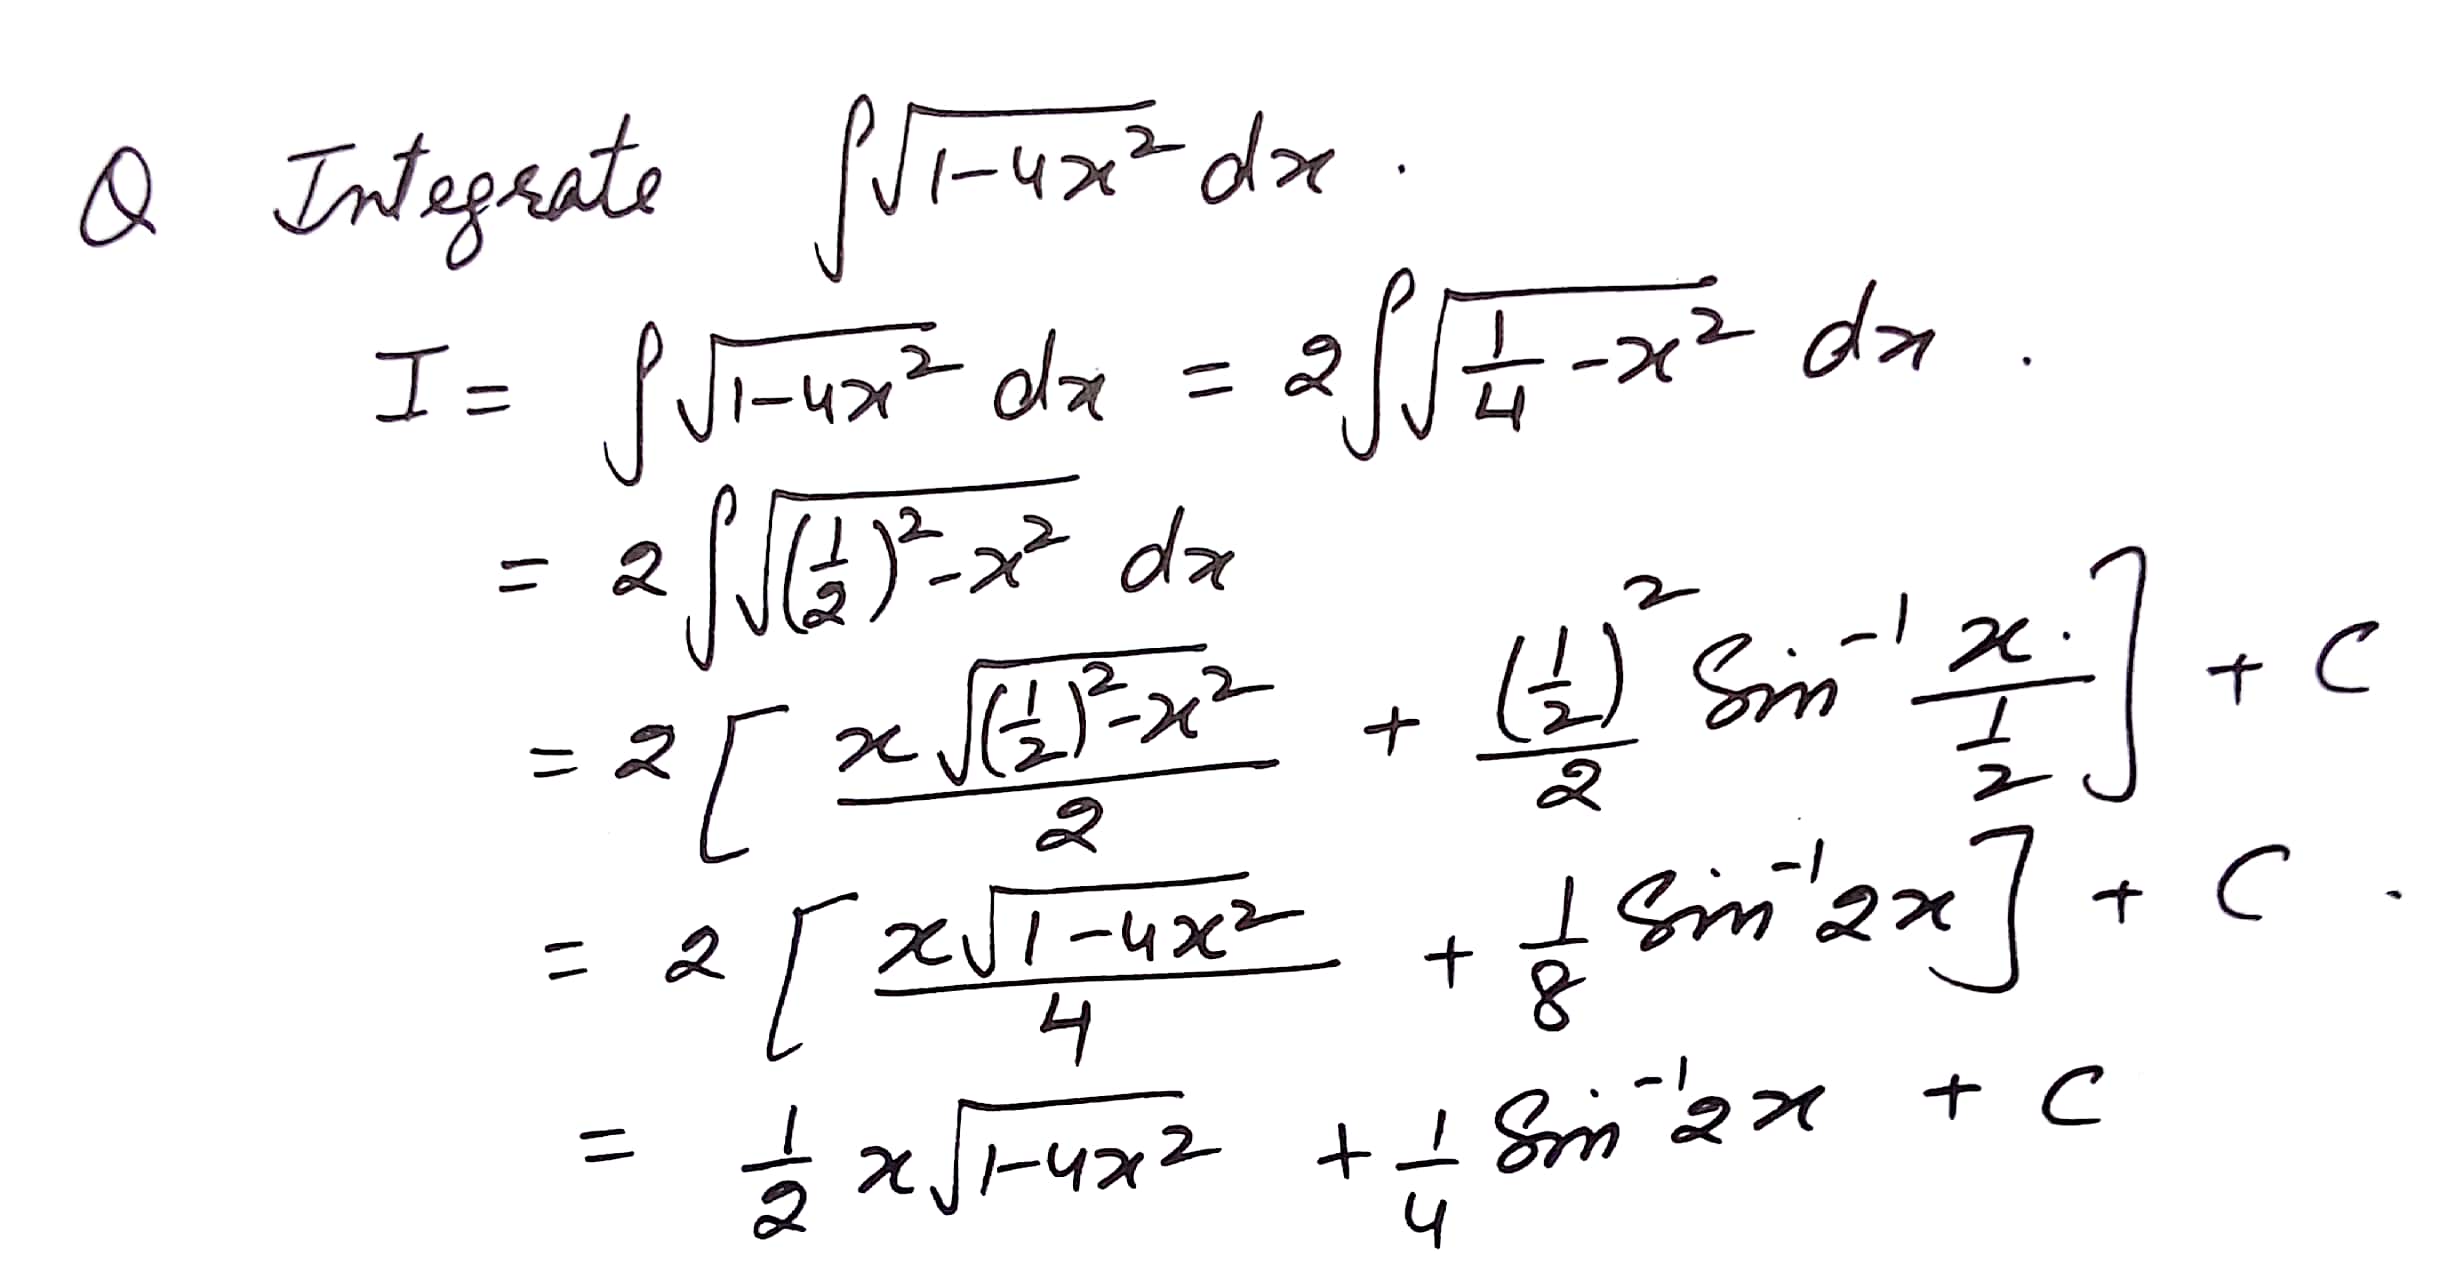 Q Integrate ∫√(1-4x²) dx .
I = ∫√(1-4x²) dx = 2∫√(1/4 - x²) dx .
= 2∫√((1/2)² - x²) dx
= 2[ x√((1/2)² - x²)/2 + (1/2)²/2 Sin⁻¹ x/(1/2) ] + C
= 2[ x√(1-4x²)/4 + 1/8 Sin⁻¹ 2x ] + C .
= 1/2 x√(1-4x²) + 1/4 Sin⁻¹ 2x + C